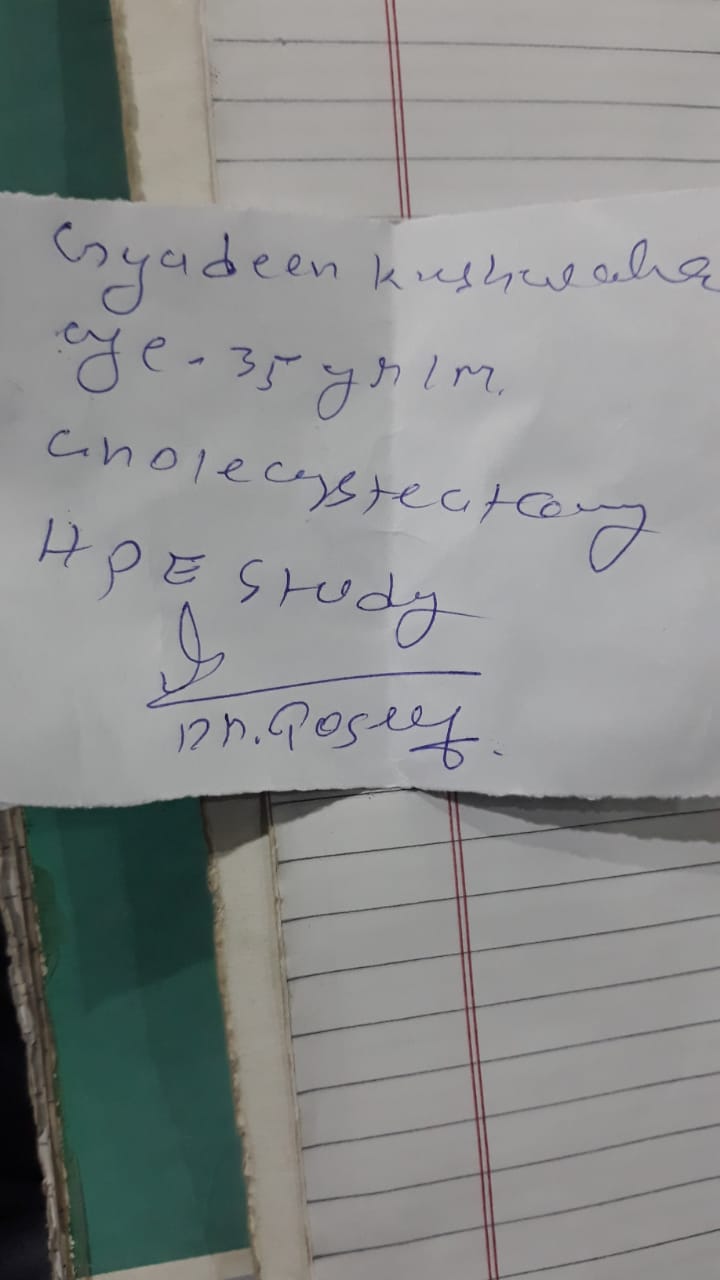 Gyadeen Kushwaha
age - 35 yr / m.
Cholecystectomy
HPE Study
Dr.